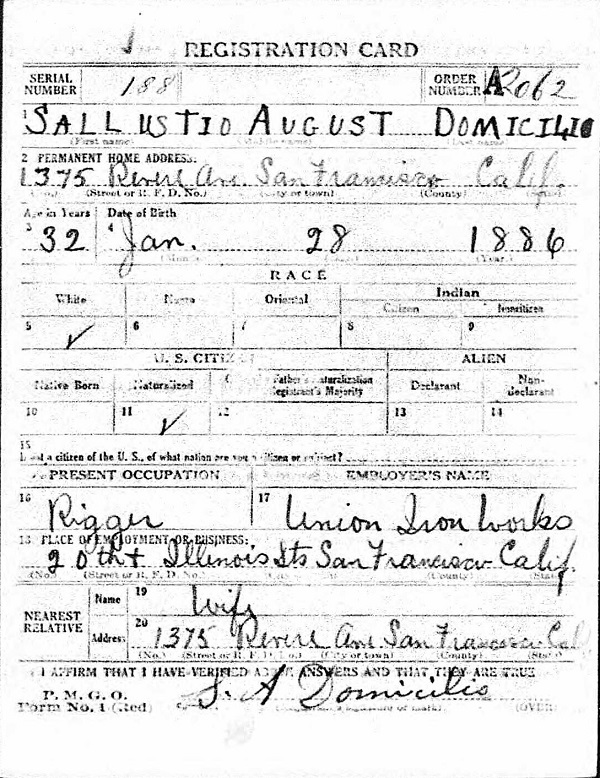 REGISTRATION CARD
SERIAL NUMBER 188 ORDER NUMBER A2062
1 SALLUSTIO AUGUST DOMICILIO
(First name) (Middle name) (Last name)
2 PERMANENT HOME ADDRESS:
1375 Revere Ave San Francisco Calif.
(No.) (Street or R. F. D. No.) (City or town) (County) (State)
Age in Years Date of Birth
3 32 4 Jan. 28 1886
(Month) (Day) (Year)
RACE
White Negro Oriental Indian
Citizen Noncitizen
5 ✓ 6 7 8 9
U. S. CITIZEN ALIEN
Native Born Naturalized Father's Naturalization Registrant's Majority Declarant Non-declarant
10 11 ✓ 12 13 14
15
If not a citizen of the U. S., of what nation are you a citizen or subject?
PRESENT OCCUPATION EMPLOYER'S NAME
16 Rigger 17 Union Iron Works
18 PLACE OF EMPLOYMENT OR BUSINESS:
20th + Illinois Sts San Francisco Calif.
(No.) (Street or R. F. D. No.) (County) (State)
NEAREST RELATIVE Name 19 Wife
Address 20 1375 Revere Ave San Francisco Cal
(No.) (Street or R. F. D. No.) (City or town) (County) (State)
I AFFIRM THAT I HAVE VERIFIED ABOVE ANSWERS AND THAT THEY ARE TRUE
P. M. G. O.
Form No. 1 (Red) S. A Domicilio
(Registrant's signature or mark) (OVER)